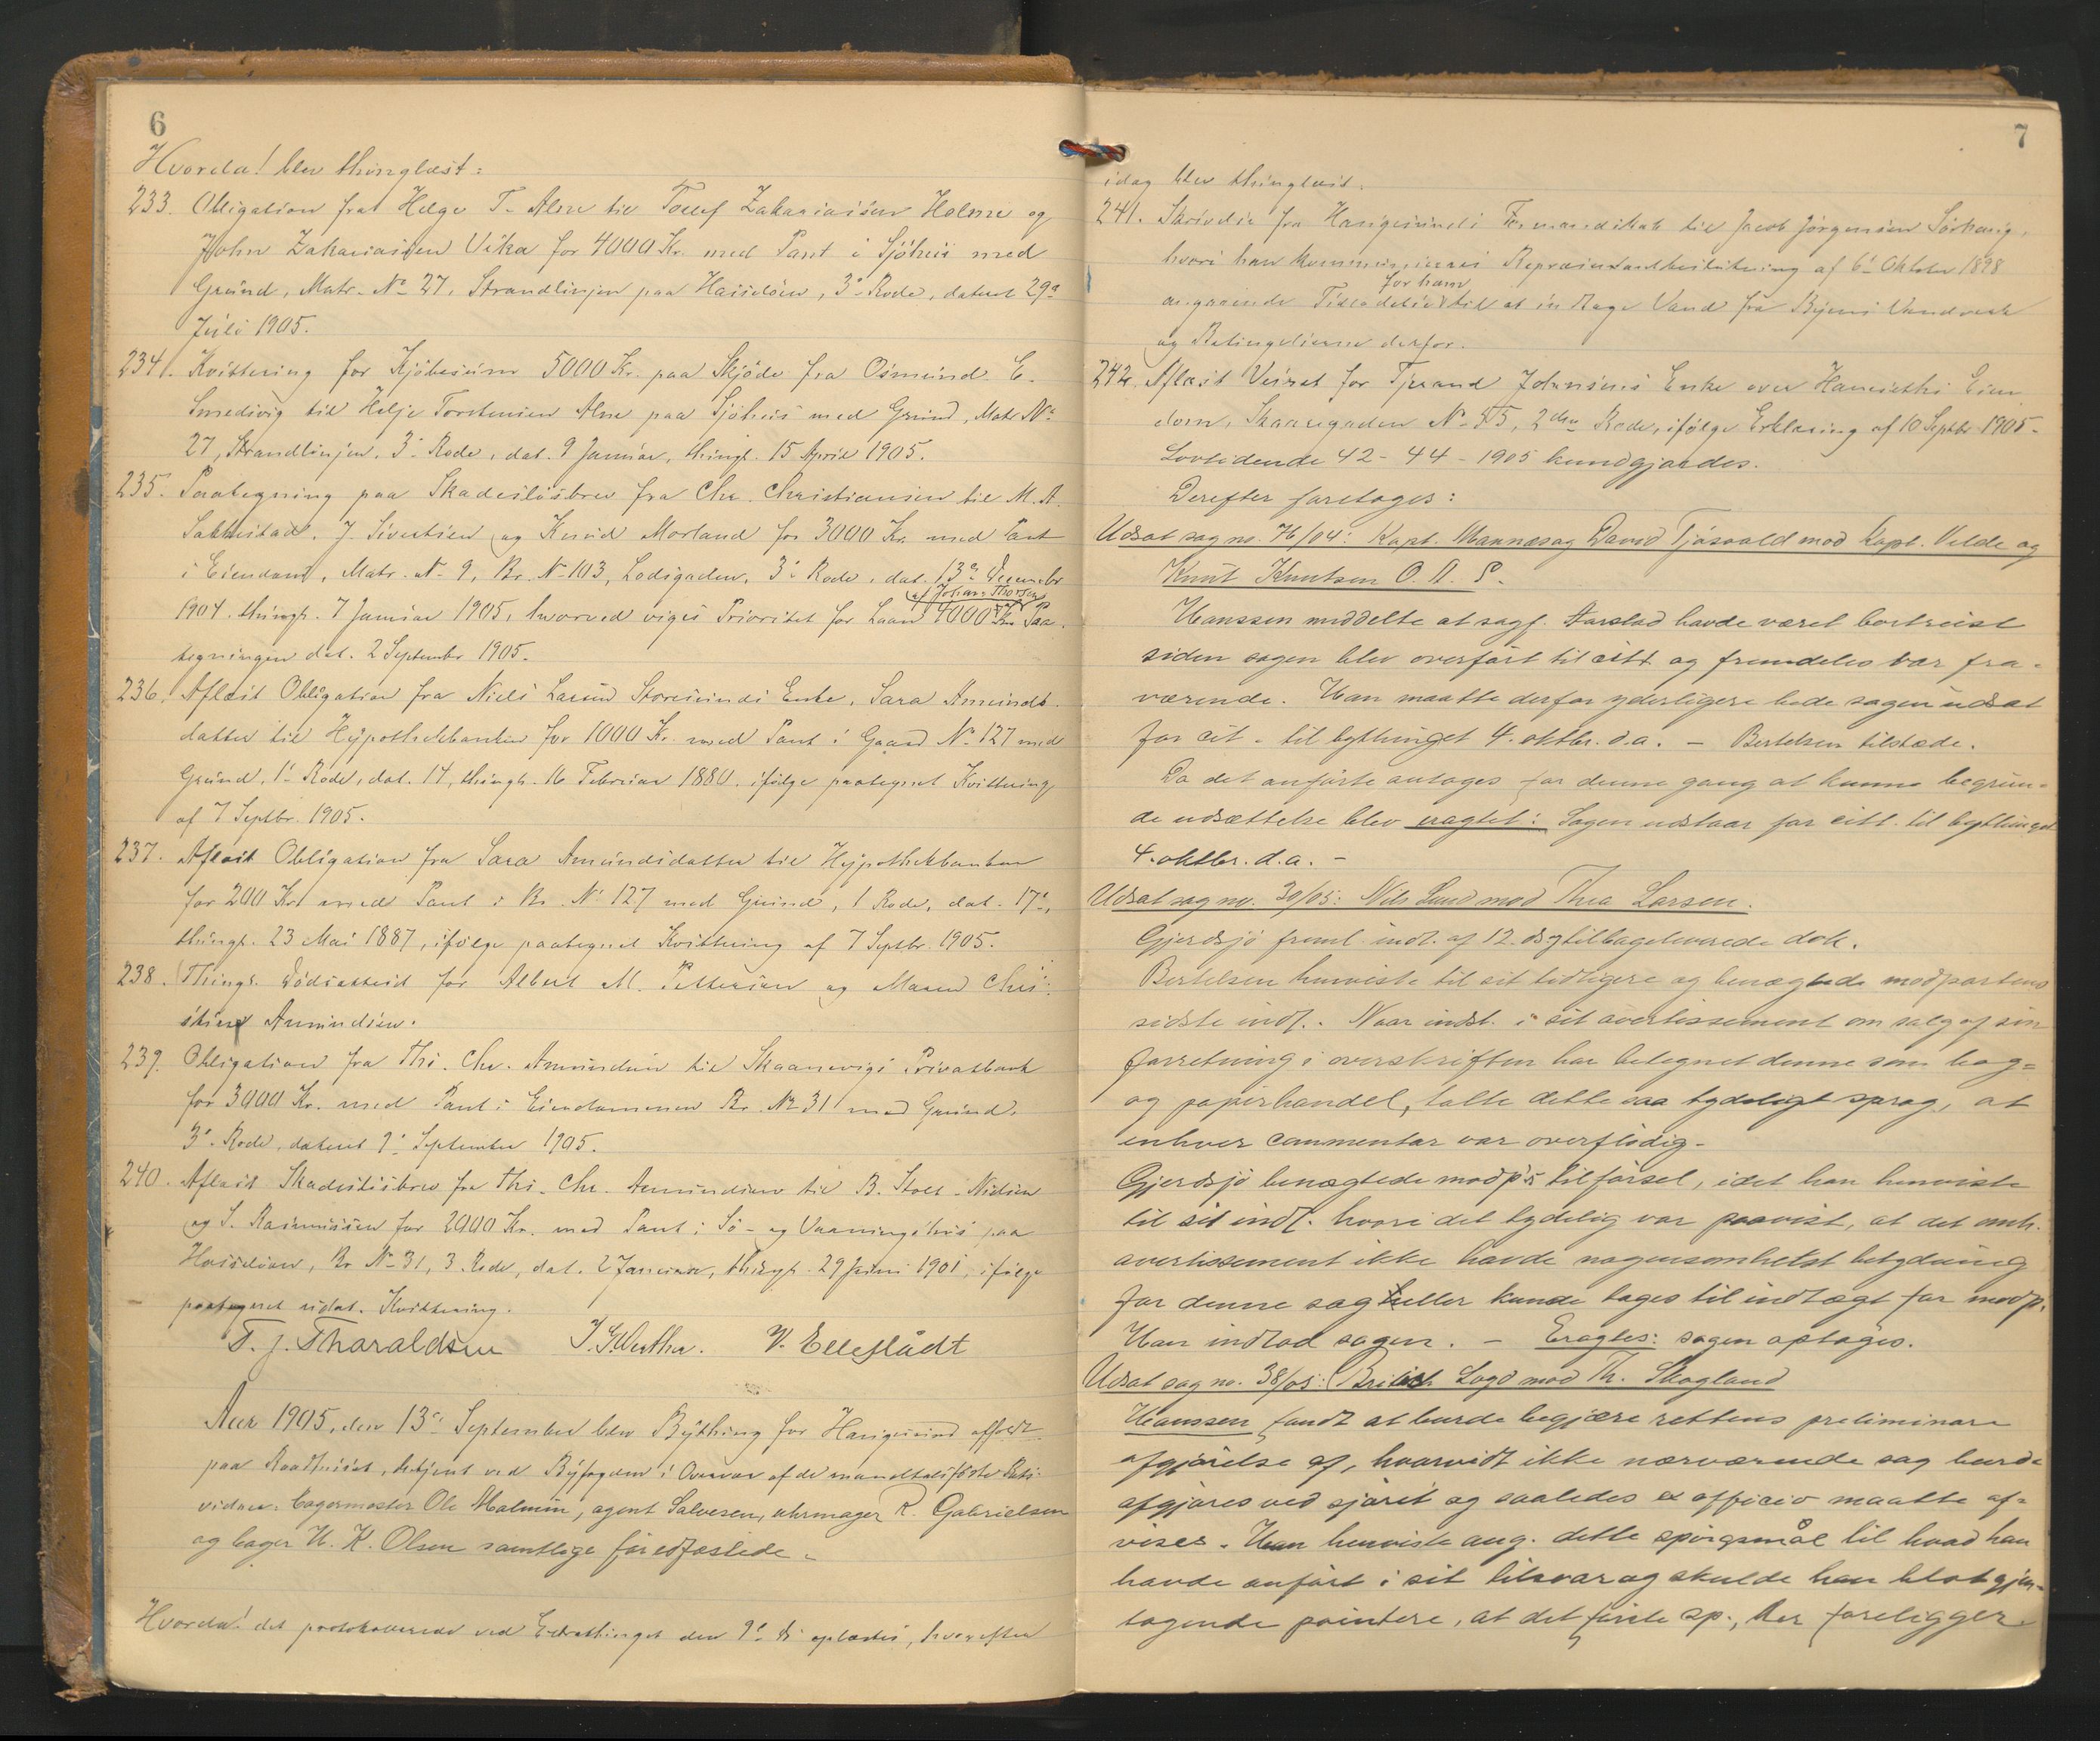 6
Hvorda! blev thinglæst:
233. Obligation fra Helge T. Alne til Tollef Zakariassen Holme og
John Zakariassen Vika for 4000 Kr. med Pant i Sjöhus med
Grund, Matr. No 27, Strandlinjen paa Hasselöen, 3die Rode, dateret 29de
Juli 1905.
234. Kvittering for Kjöbesum 5000 Kr. paa Skjöde fra Osmund E.
Smedvig til Helje Torstensen Alne paa Sjöhus med Grund, Matr No
27, Strandlinjen, 3die Rode, dat. 9 Januar, thingl. 15 April 1905.
235. Paategning paa Skadeslösbrev fra Chr. Christiansen til M. A.
J. Sivertsen og Knud Morland for 3000 Kr. med Pant
i Eiendom, Matr. No 9, Br. No 103, Lodsgaden, 3die Rode, dat. 13de December
1904, thingl. 7 Januar 1905, hvorved viges Prioritet for Laan 4000 Kr. Paa-
af Johan Thorsen
tegningen dat. 2 September 1905.
236. Aflæst Obligation fra Niels Larsen Storesunds Enke, Sara Amunds-
datter til Hypothekbanken for 1000 Kr. med Pant i Gaard No 127 med
Grund, 1ste Rode, dat. 14, thingl. 16 Februar 1880, ifölge paategnet Kvittering
af 7 Septbr. 1905.
237. Aflæst Obligation fra Sara Amundsdatter til Hypothekbanken
for 200 Kr. med Pant i Br. No 127 med Grund, 1 Rode, dat. 17de,
thingl. 23 Mai 1887, ifölge paategnet Kvittering af 7 Septbr. 1905.
238. Thingl. Dödsattest for Albert M. Pettersen og Maren Chri-
stine Amundsen.
239. Obligation fra Ths. Chr. Amundsen til Skaanevigs Privatbank
for 3000 Kr. med Pant i Eiendommen Br. No 31 med Grund,
3die Rode, dateret 9de September 1905.
240. Aflæst Skadeslösbrev fra Ths. Chr. Amundsen til B. Stolt-Nielsen
og S. Rasmussen for 2000 Kr. med Pant i Sö- og Vaaningshus paa
Hasselöen, Br No 31, 3 Rode, dat. 2 Januar, thingl. 29 Juni 1901, ifölge
paategnet udat. Kvittering.
T. J. Tharaldsen V. Elleflådt
Aar 1905, den 13de September blev Bything for Haugesund afholdt
paa Raadhuset, betjent ved Byfogden i Overvær af de mandtalsförte Retsvidner:
bagermester Ole Malmin, agent Salvesen, uhrmager R. Gabrielsen
og bager H. K. Olsen samtlige foredfæstede.
Hvorda! det protokollerede ved Extrathinget den 9de ds oplæstes, hvorefter
7
idag blev thinglæst:
241. Skrivelse fra Haugesunds Formandskab til Jacob Jörgensen Sörhaug,
hvori han kommuniceres Repræsentantbeslutning af 6te Oktober 1898
angaaende Tilladelse for ham til at indtage Vand fra Byens Vandverk
og Betingelserne derfor.
242. Aflæst Veiret for Tjerand Johnsens Enke over Eien-
dom, Skaaregaden No 55, 2den Rode, ifölge Erklæring af 10 Septbr 1905.
Lovtidende 42-44-1905 kundgjordes.
Derefter foretoges:
Udsat sag no. 76/04: Kapt. Mannesag David Tjösvold mod Kapt. Velde og
Knut Knutsen O. A. S.
Hanssen meddelte at sagf. Aarstad havde været bortreist
siden sagen blev overført til citt og fremdeles var fra-
værende. Han maatte derfor yderligere bede sagen udsat
for cit. til bythinget 4. oktbr. d.a. - Bertelsen tilstede.
Da det anførte antages for denne gang at kunne begrun-
de udsættelse blev eragtet: Sagen udstaar for citt. til bythinget
4. oktbr. d.a. -
Udsat sag no. 30/05: Nils Lund mod Thea Larsen.
Gjerdsjö freml. indl. af 12. ds og tilbageleverede dok.
Bertelsen henviste til sit tidligere og benægtede modpartens
sidste indl. Naar indst. i sit avertissement om salg af sin
forretning i overskriften har betegnet denne som bog-
og papirhandel, talte dette saa tydeligt sprog, at
enhver commentar var overflödig.
Gjerdsjö benægtede modp's tilförsel, idet han henviste
til sit indl. hvori det tydelig var paavist, at det omh.
avertissement ikke havde nogensomhelst betydning
for denne sag heller kunde tages til indtægt for modp.
Han indlod sagen. - Eragtes: sagen optages.
Udsat sag no. 38/05: British Lagd mod Th. Skogland
Hanssen fandt at burde begjære rettens preliminære
afgjörelse af, hvorvidt ikke nærværende sag burde
afgjöres ved sjöret og saaledes ex officio maatte af-
vises. Han henviste ang. dette spörgsmål til hvad han
havde anfört i sit tilsvar og skulde han blot gjen-
tagende pointere, at det förste sp., her foreligger